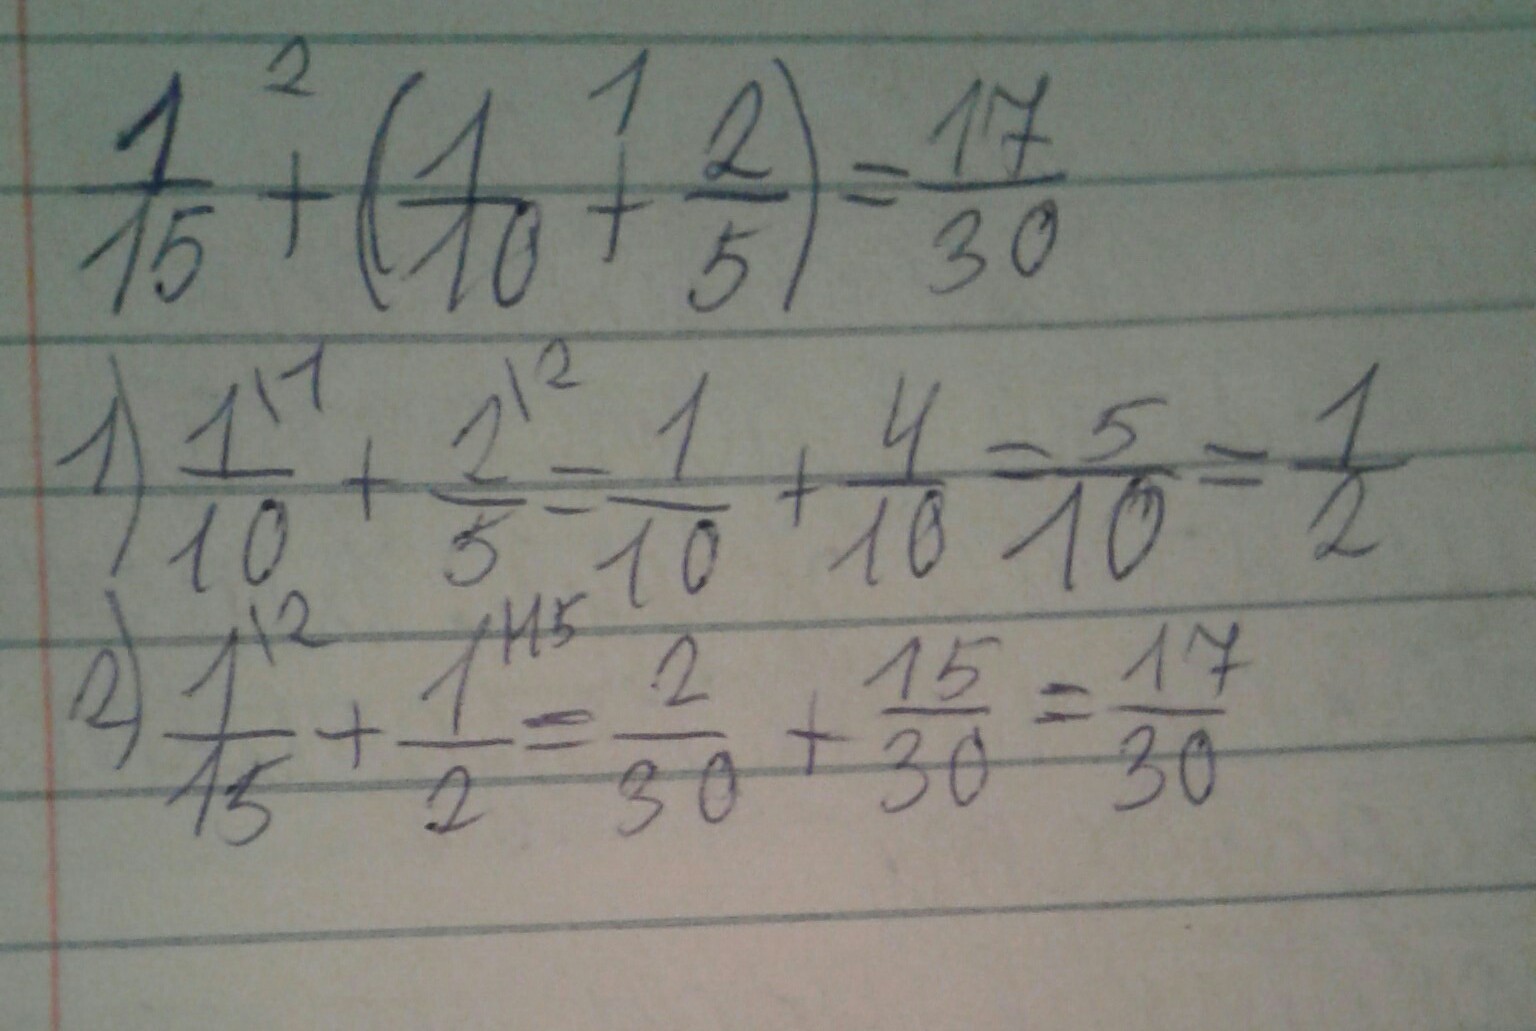 1/15 +² (1/10 +¹ 2/5) = 17/30
1) 1\1/10 + 2\2/5 = 1/10 + 4/10 = 5/10 = 1/2
2) 1\2/15 + 1\15/2 = 2/30 + 15/30 = 17/30